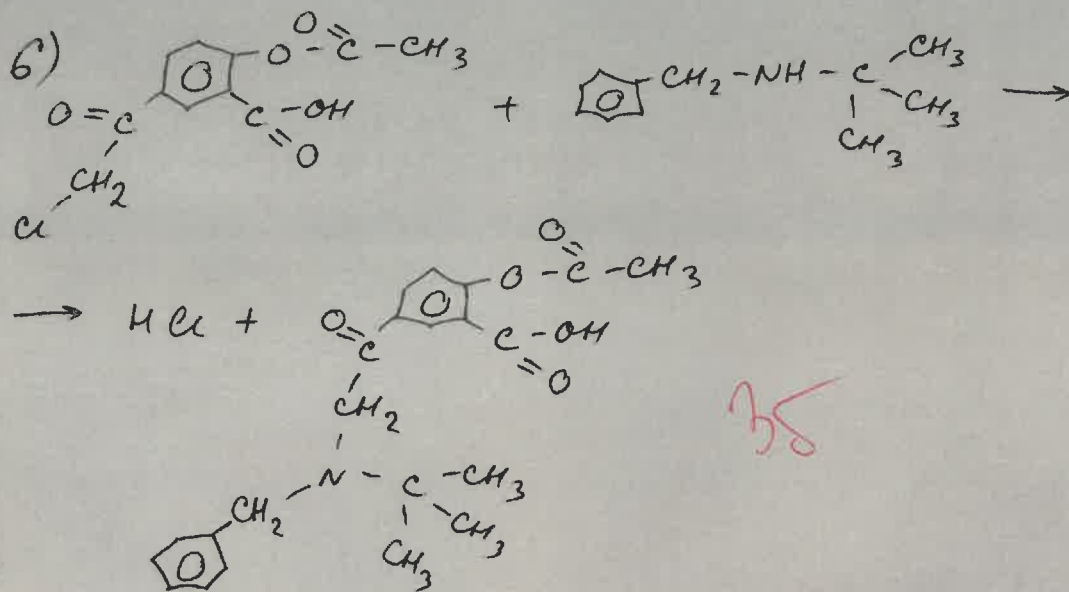 б)
O=C-CH3
O
O=C
C-OH
O
CH2
Cl
+
CH2-NH-C
CH3
CH3
CH3
→
→ HCl +
O
O-C-CH3
O=C
C-OH
O
CH2
N-C-CH3
CH2
CH3
CH3
3б